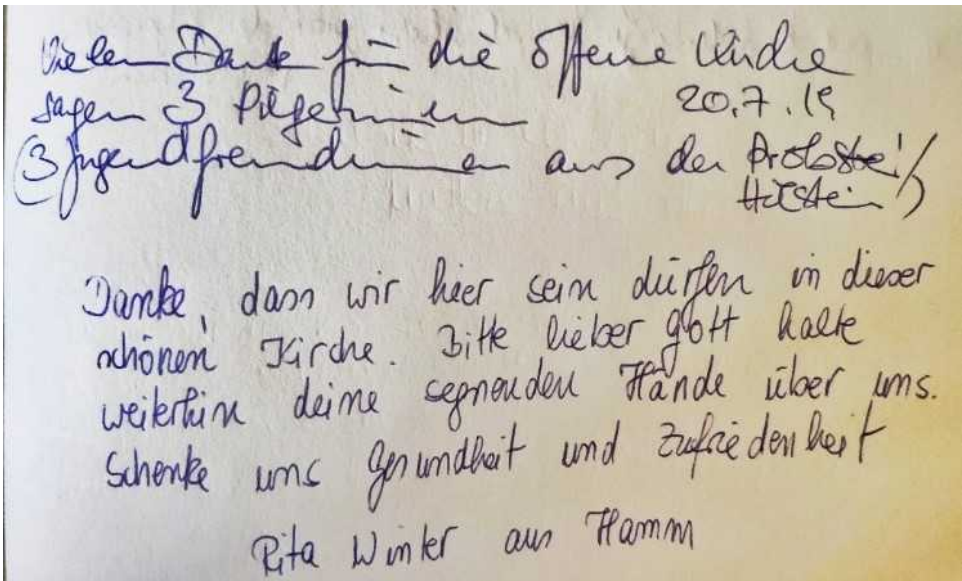 Vielen Dank für die offene Kirche
sagen 3 Pilgerinnen 20.7.19
(3 Jugendfreundinnen aus der Probstei/
Holstein)
Danke, dass wir hier sein dürfen in dieser
schönen Kirche. Bitte lieber Gott halte
weiterhin deine segnenden Hände über uns.
Schenke uns Gesundheit und Zufriedenheit
Rita Winter aus Hamm